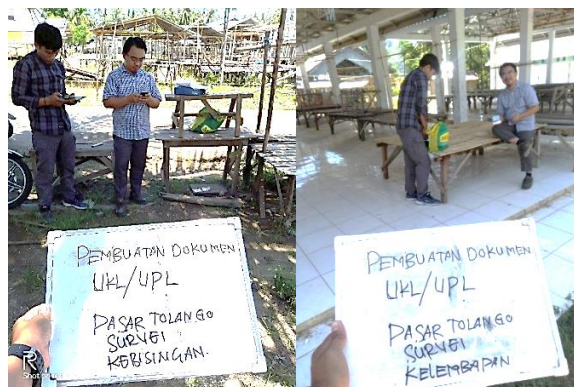 PEMBUATAN DOKUMEN
UKL/UPL
PASAR TOLANGO
SURVEI
KEBISINGAN.
R
Shot on
PEMBUATAN DOKUMEN
UKL/UPL
PASAR TOLANGO
SURVEI
KELEMBAPAN